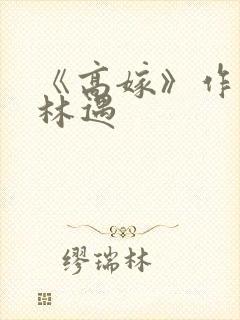 《高嫁》作
林遇
缪瑞林